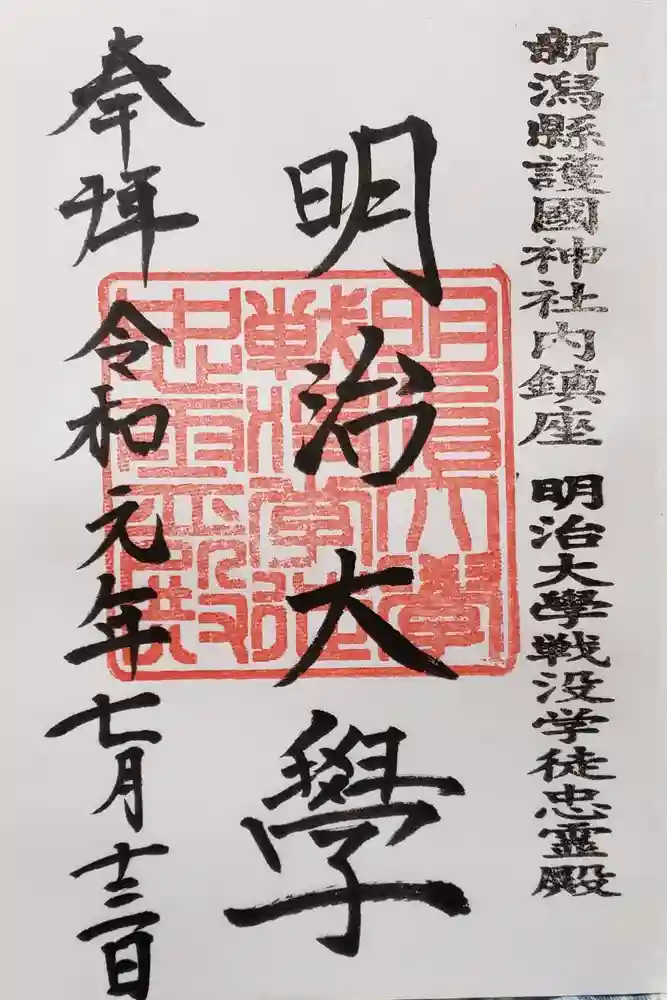 新潟縣護國神社内鎮座 明治大學戦没学徒忠霊殿
明治大學
奉拝 令和元年七月十三日
明治大學
戦没学徒
忠霊殿